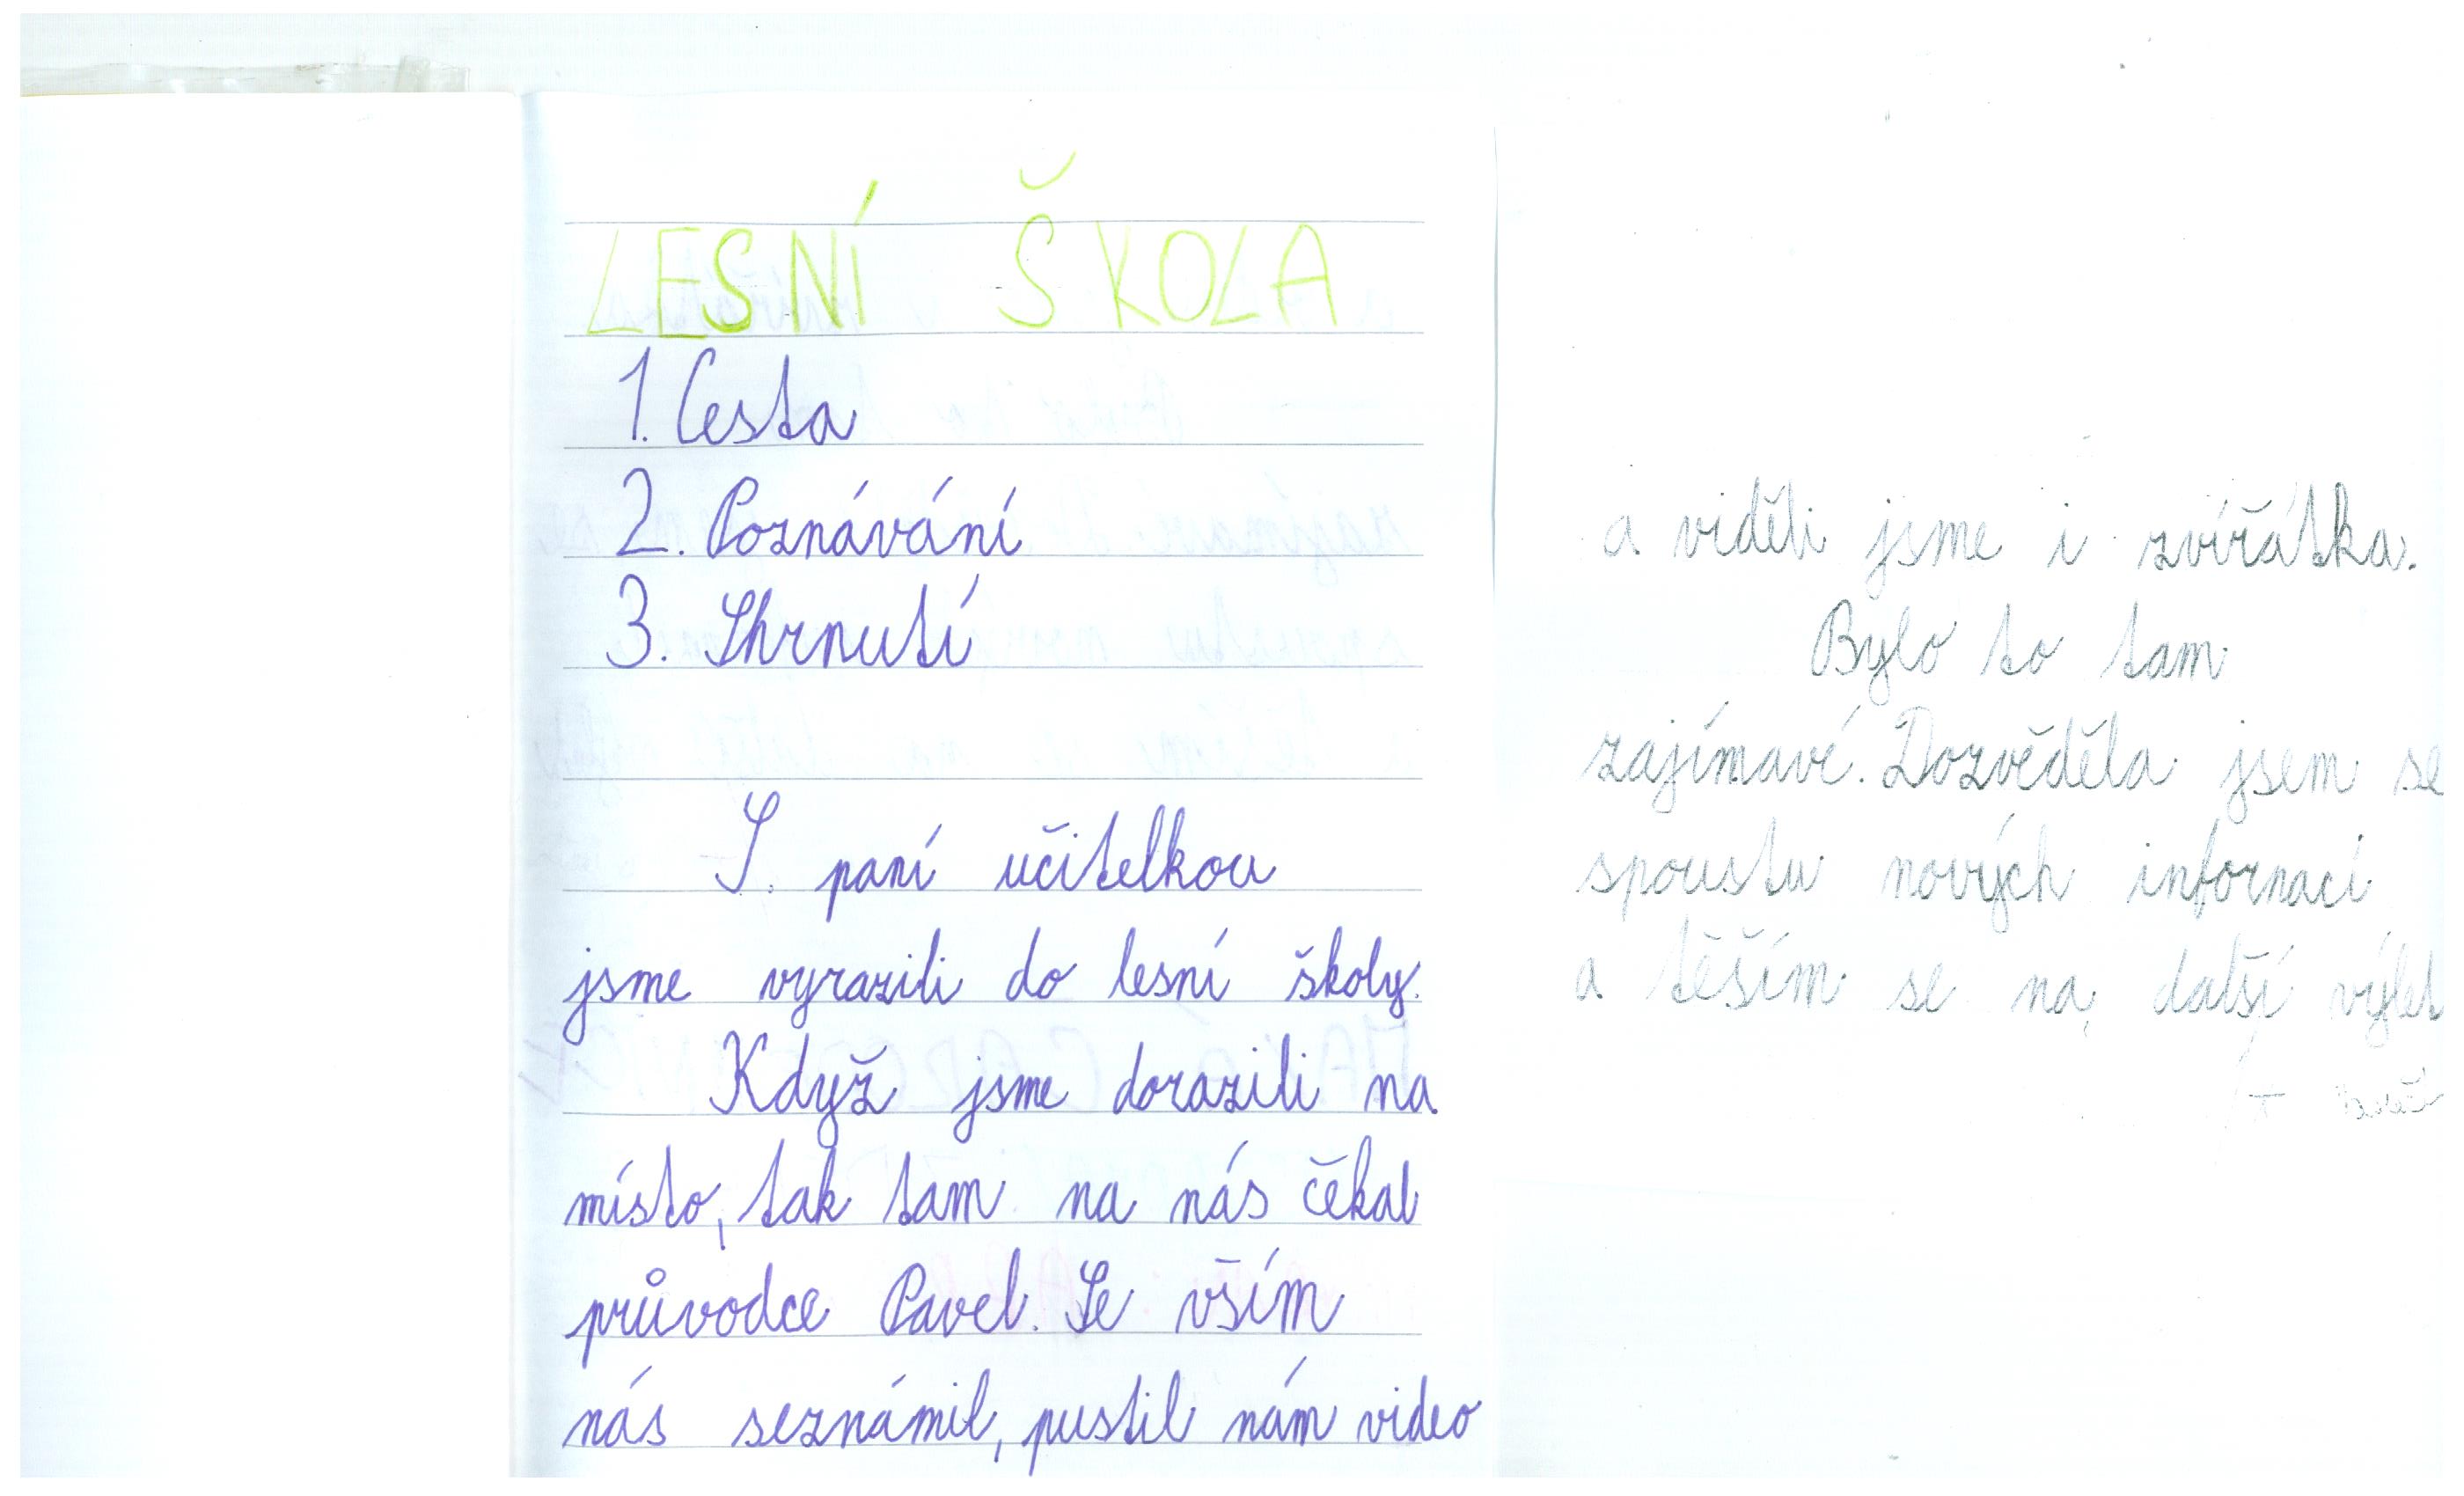 LESNÍ ŠKOLA
1. Cesta
2. Poznávání
3. Shrnutí
S paní učitelkou
jsme vyrazili do lesní školy.
Když jsme dorazili na
místo, tak tam na nás čekal
průvodce Pavel. Se vším
nás seznámil, pustil nám video
a viděli jsme i zvířátka.
Bylo to tam
zajímavé. Dozvěděla jsem se
spoustu nových informací
a těším se na další výlet